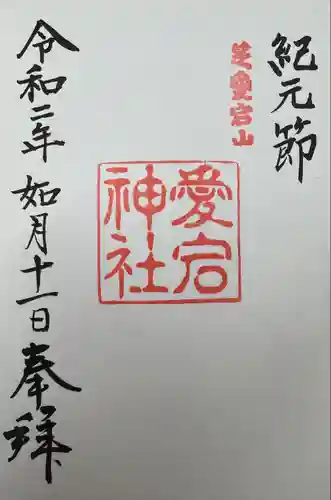 紀元節
芝愛宕山
愛宕
神社
令和二年如月十一日奉拝